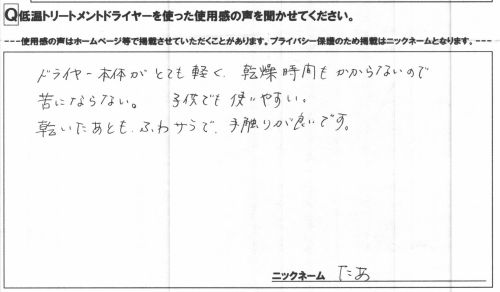 Q低温トリートメントドライヤーを使った使用感の声を聞かせてください。
----使用感の声はホームページ等で掲載させていただくことがあります。プライバシー保護のため掲載はニックネームとなります。---
ドライヤー本体がとても軽く、乾燥時間もかからないので
苦にならない。 子供でも使いやすい。
乾いたあとも、ふわサラで、手触りが良いです。
ニックネーム たあ